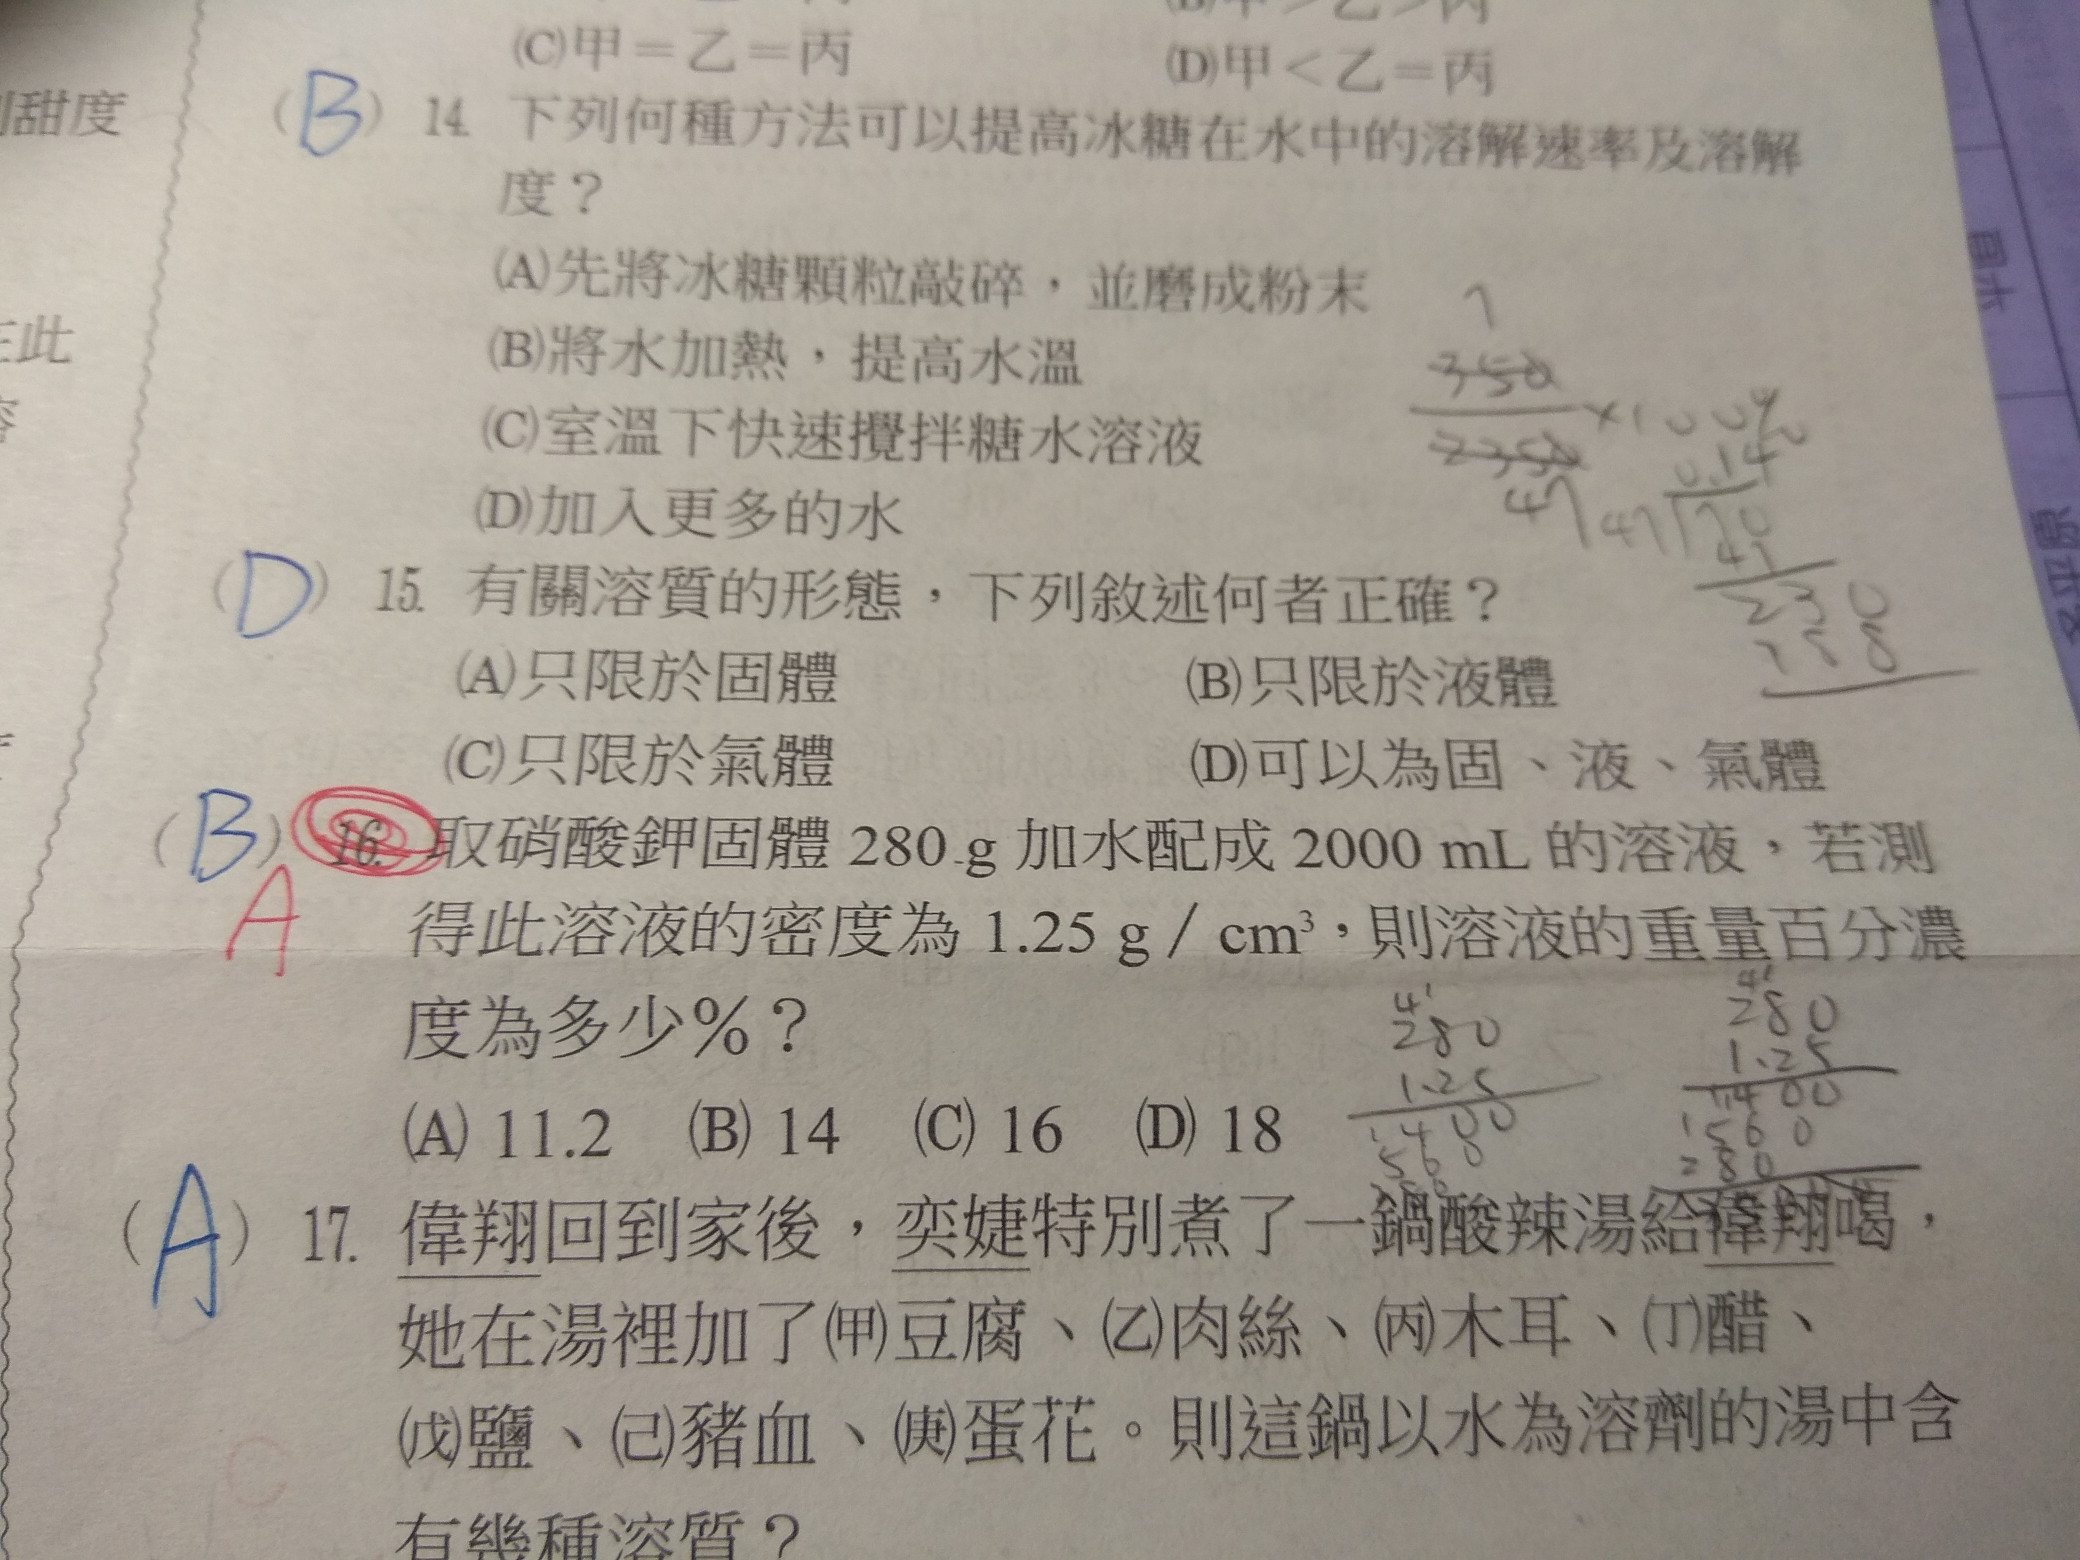 (C)甲＝乙＝丙 (D)甲＜乙＝丙
甜度
(B) 14. 下列何種方法可以提高冰糖在水中的溶解速率及溶解
度？
(A)先將冰糖顆粒敲碎，並磨成粉末
(B)將水加熱，提高水溫
(C)室溫下快速攪拌糖水溶液
(D)加入更多的水
此
7
350
2350
47
0.14
(D) 15. 有關溶質的形態，下列敘述何者正確？
(A)只限於固體 (B)只限於液體
(C)只限於氣體 (D)可以為固、液、氣體
(B) 16. 取硝酸鉀固體 280 g 加水配成 2000 mL 的溶液，若測
A
得此溶液的密度為 1.25 g／cm³，則溶液的重量百分濃
度為多少%？
280
1.25
1400
280
1.25
1400
1560
280
(A) 11.2 (B) 14 (C) 16 (D) 18
(A) 17. 偉翔回到家後，奕婕特別煮了一鍋酸辣湯給偉翔喝，
她在湯裡加了(甲)豆腐、(乙)肉絲、(丙)木耳、(丁)醋、
(戊)鹽、(己)豬血、(庚)蛋花。則這鍋以水為溶劑的湯中含
有幾種溶質？